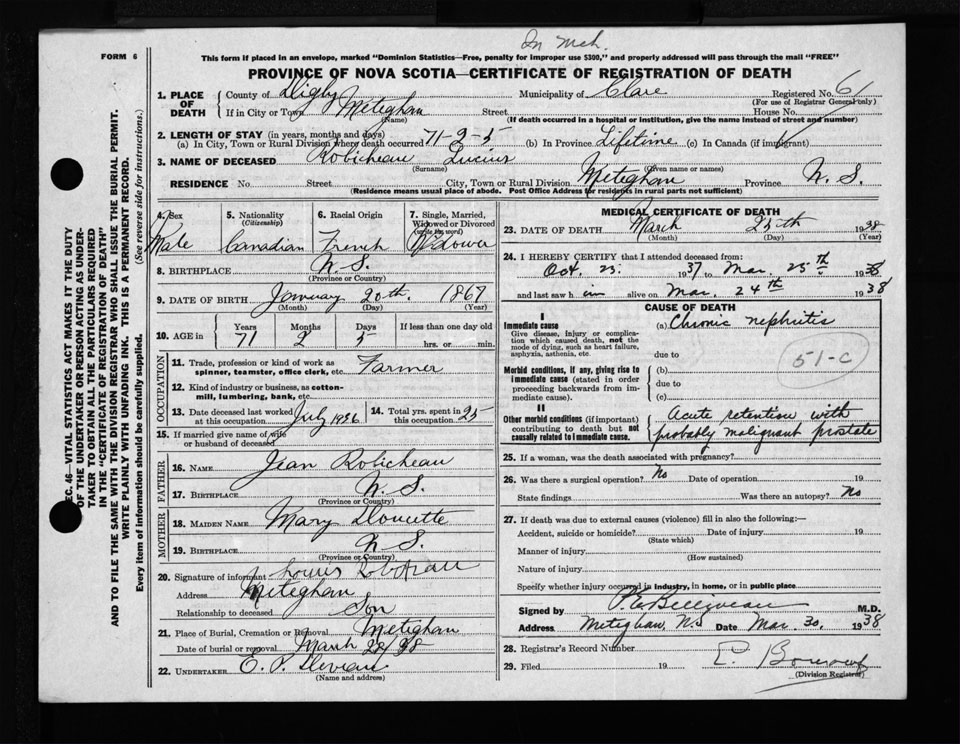 In Mch.
FORM 6
This form if placed in an envelope, marked "Dominion Statistics—Free, penalty for improper use $300," and properly addressed will pass through the mail "FREE"
PROVINCE OF NOVA SCOTIA—CERTIFICATE OF REGISTRATION OF DEATH
1. PLACE OF DEATH County of Digby Municipality of Clare Registered No. 61
(For use of Registrar General only)
If in City or Town Meteghan Street House No.
(Name) (If death occurred in a hospital or institution, give the name instead of street and number)
2. LENGTH OF STAY (in years, months and days)
(a) In City, Town or Rural Division where death occurred 71-2-5 (b) In Province Lifetime (c) In Canada (if immigrant)
3. NAME OF DECEASED Robicheau Lucius
(Surname) (Given name or names)
RESIDENCE No. Street City, Town or Rural Division Meteghan Province N. S.
(Residence means usual place of abode. Post Office Address for residents in rural parts not sufficient)
4. Sex Male
5. Nationality (Citizenship) Canadian
6. Racial Origin French
7. Single, Married, Widowed or Divorced (write the word) Widower
8. BIRTHPLACE N. S.
(Province or Country)
9. DATE OF BIRTH January 20th. 1867
(Month) (Day) (Year)
10. AGE in Years Months Days If less than one day old
71 2 5 hrs. or min.
OCCUPATION
11. Trade, profession or kind of work as spinner, teamster, office clerk, etc. Farmer
12. Kind of industry or business, as cotton-mill, lumbering, bank, etc.
13. Date deceased last worked at this occupation July 1936 14. Total yrs. spent in this occupation 25
15. If married give name of wife or husband of deceased
FATHER
16. NAME Jean Robicheau
17. BIRTHPLACE N. S.
(Province or Country)
MOTHER
18. MAIDEN NAME Mary Doucette
19. BIRTHPLACE N. S.
(Province or Country)
20. Signature of informant Louis
Address Meteghan
Relationship to deceased Son
21. Place of Burial, Cremation or Removal Meteghan
Date of burial or removal March 28/38
22. UNDERTAKER E. P.
(Name and address)
MEDICAL CERTIFICATE OF DEATH
23. DATE OF DEATH March 25th 1938
(Month) (Day) (Year)
24. I HEREBY CERTIFY that I attended deceased from:
Oct. 23. 1937 to Mar. 25th 1938
and last saw him alive on Mar. 24th 1938
CAUSE OF DEATH
I
Immediate cause (a) Chronic nephritis
Give disease, injury or complication which caused death, not the mode of dying, such as heart failure, asphyxia, asthenia, etc. due to
51-C
Morbid conditions, if any, giving rise to immediate cause (stated in order proceeding backwards from immediate cause). (b)
due to
(c)
II
Other morbid conditions (if important) contributing to death but not causally related to immediate cause. Acute retention with
probably malignant prostate
25. If a woman, was the death associated with pregnancy?
26. Was there a surgical operation? No Date of operation 19
State findings Was there an autopsy? No
27. If death was due to external causes (violence) fill in also the following:—
Accident, suicide or homicide? Date of injury 19
(State which)
Manner of injury
(How sustained)
Nature of injury
Specify whether injury occurred in industry, in home, or in public place
Signed by P. E. Belliveau M.D.
Address Meteghan, N.S. Date Mar. 30, 1938
28. Registrar's Record Number
29. Filed 19
(Division Registrar)
SEC. 46—VITAL STATISTICS ACT MAKES IT THE DUTY
OF THE UNDERTAKER OR PERSON ACTING AS UNDER-
TAKER TO OBTAIN ALL THE PARTICULARS REQUIRED
IN THE "CERTIFICATE OF REGISTRATION OF DEATH"
AND TO FILE THE SAME WITH THE DIVISION REGISTRAR WHO SHALL ISSUE THE BURIAL PERMIT.
WRITE PLAINLY WITH UNFADING INK. THIS IS A PERMANENT RECORD.
Every item of information should be carefully supplied. (See reverse side for instructions.)